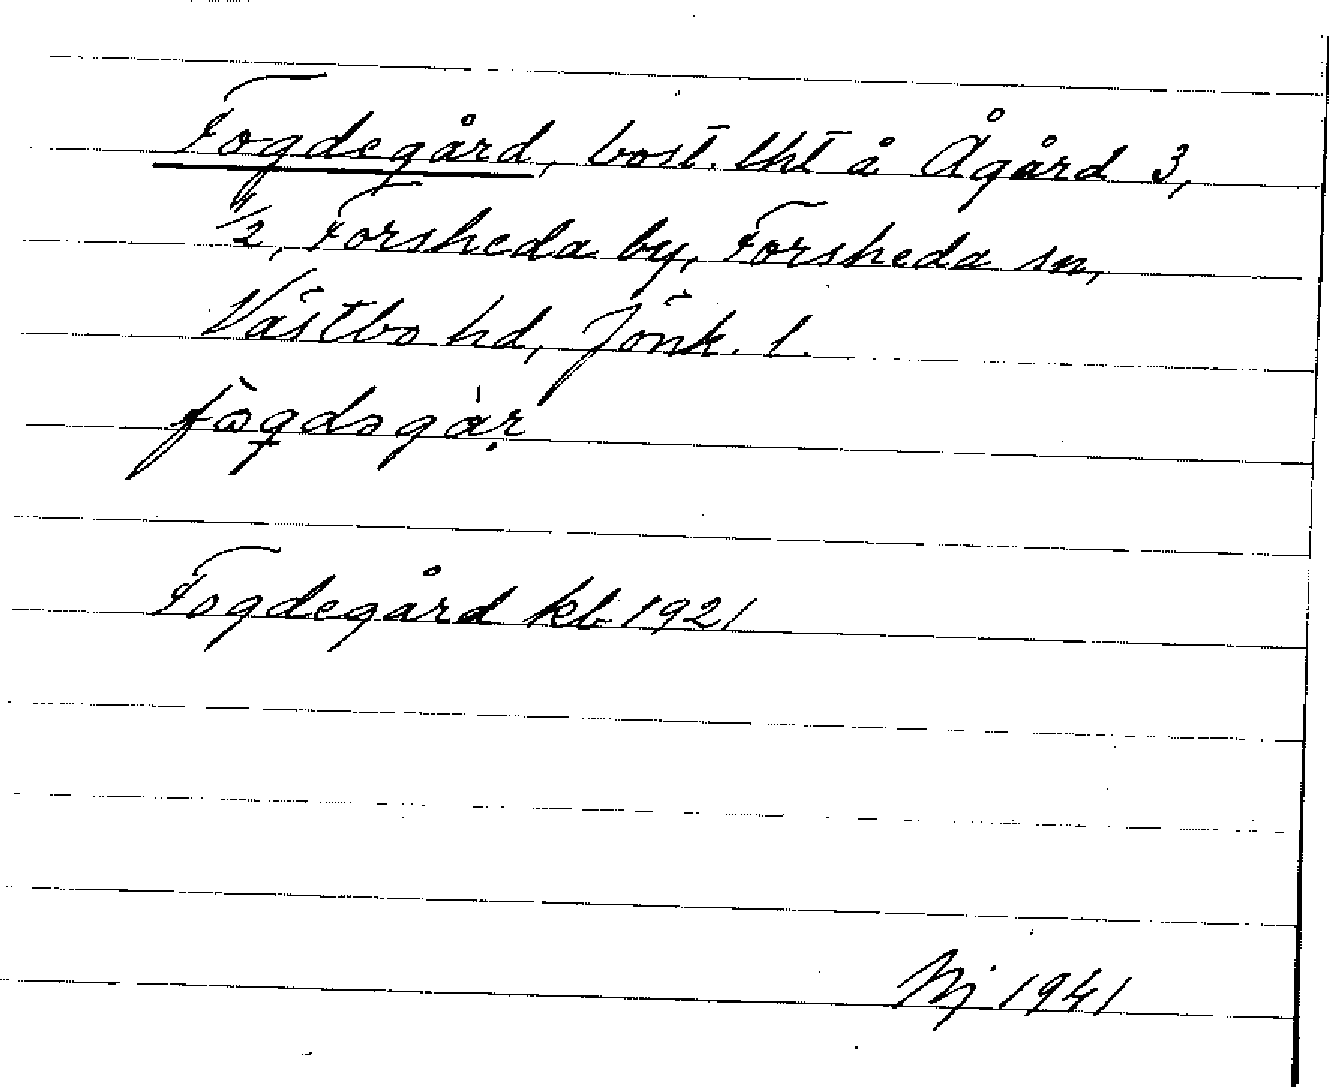 Fogdegård, bost. lht å Ågård 3,
1/2, Forsheda by, Forsheda sn,
Västbo hd, Jönk. l.
fògdəgàṛ
Fogdegård kb 1921
Nj 1941